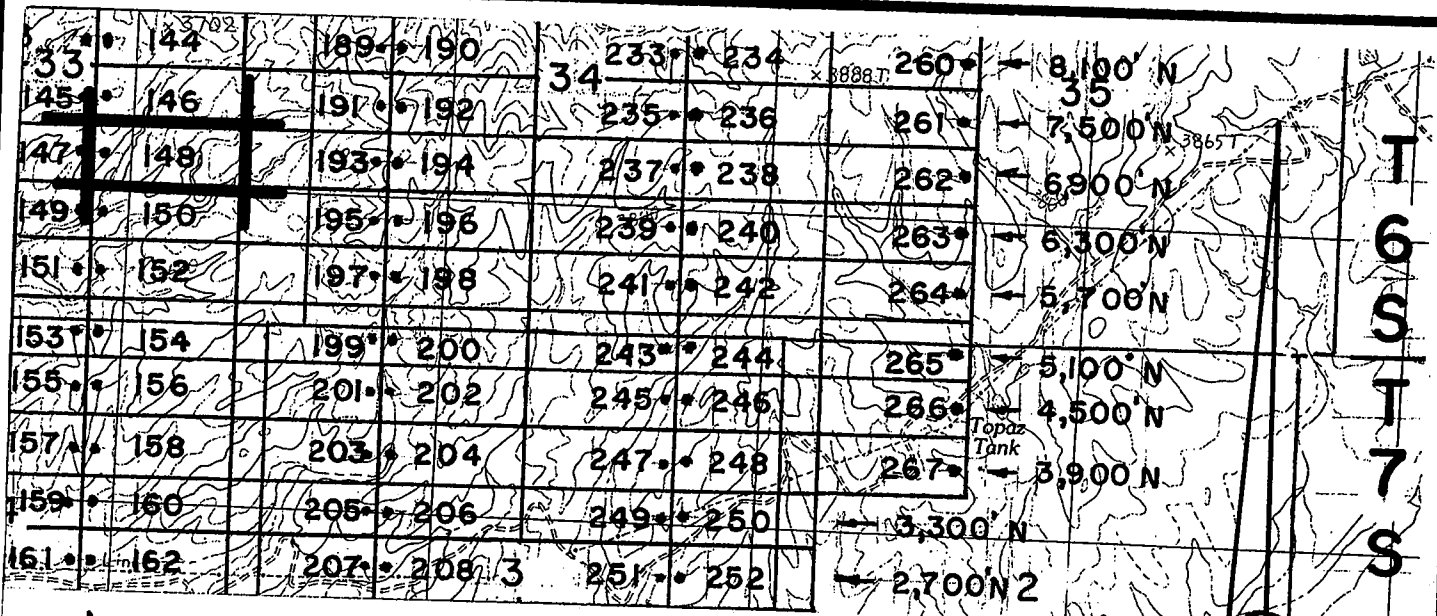 144 189 190 233 234 260 8,100' N
33 34 × 3888T 35
× 3702
145 146 191 192 235 236 261 7,500'N
× 3865T
147 148 193 194 237 238 262 6,900' N
149 150 195 196 239 240 263 6,300'N
151 152 197 198 241 242 264 5,700'N
153 154 199 200 243 244 265 5,100' N
155 156 201 202 245 246 266 4,500'N
Topaz
Tank
157 158 203 204 247 248 267 3,900 N
159 160 205 206 249 250 3,300' N
161 162 207 208 3 251 252 2,700'N 2
T
6
S
T
7
S